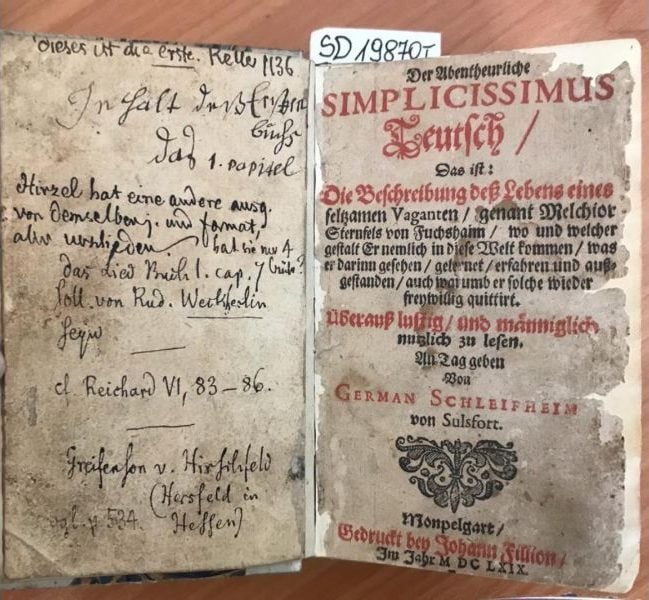 SD 19870-
dieses ist die erste. Keller 1136
Inhalt deß Ersten
buchs
das 1. capitel
Hirzel hat eine andere ausg.
von demselben j. und format,
aber verschieden
hat sie nur 4
bücher?
das Lied Buch 1. cap. 7
soll von Rud. Weckherlin
seyn
cf. Reichard VI, 83-86.
Greifenson v. Hirschfeld
(Hersfeld in
vgl. p. 534. Hessen)
Der Abentheurliche
SIMPLICISSIMUS
Teutsch /
Das ist:
Die Beschreibung deß Lebens eines
seltzamen Vaganten / genant Melchior
Sternfels von Fuchshaim / wo und welcher
gestalt Er nemlich in diese Welt kommen / was
er darinn gesehen / gelernet / erfahren und auß-
gestanden / auch warumb er solche wieder
freywillig quittirt.
Überauß lustig / und männiglich
nutzlich zu lesen.
An Tag geben
Von
GERMAN SCHLEIFHEIM
von Sulsfort.
Monpelgart /
Gedruckt bey Johann Fillion /
Im Jahr M DC LXIX.